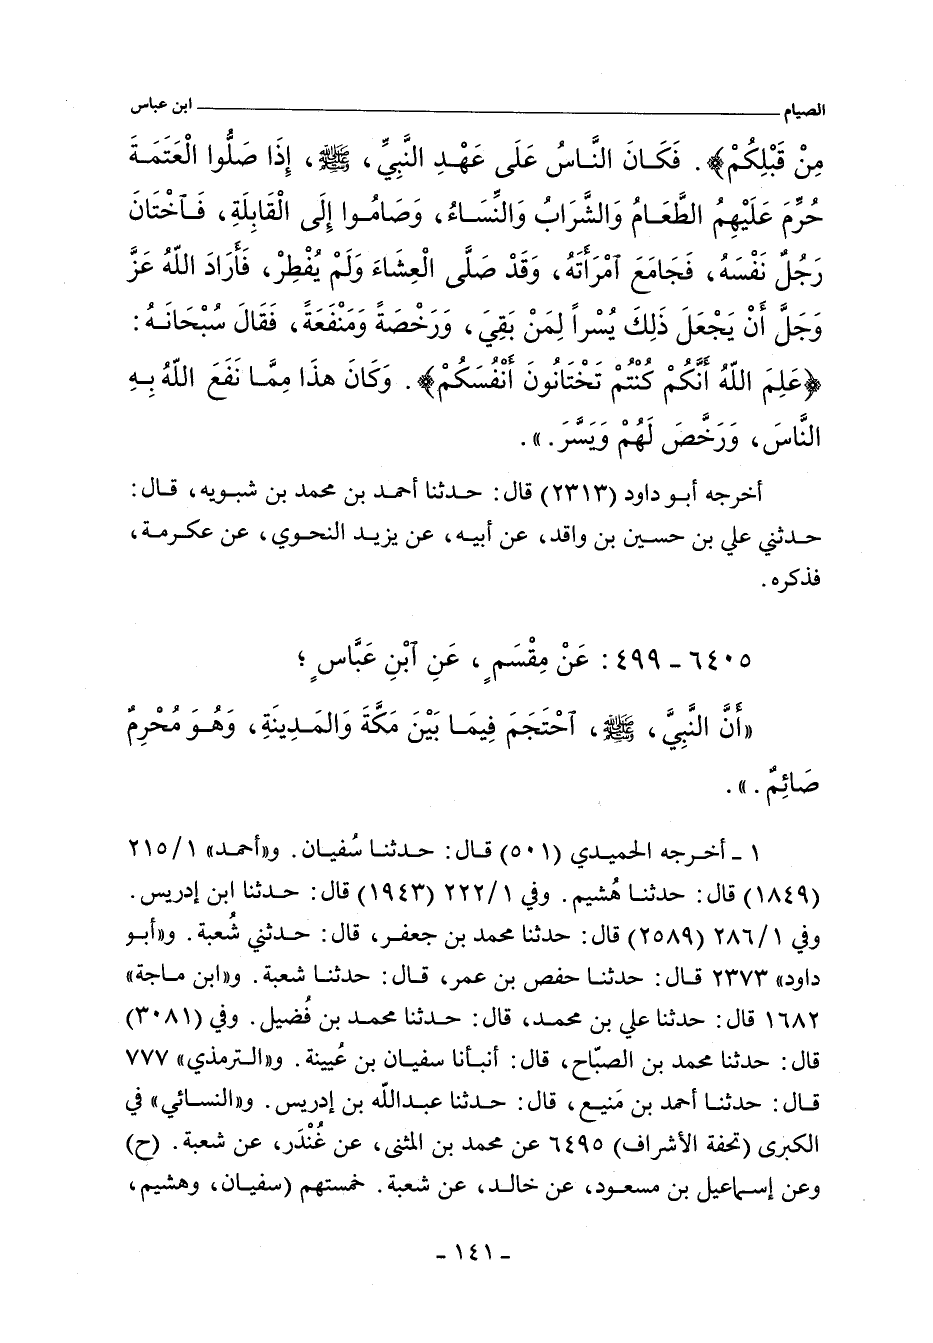 الصيام ــــــ ابن عباس
مِنْ قَبْلِكُمْ﴾ . فَكَانَ النَّاسُ عَلَى عَهْدِ النَّبِيِّ، ﷺ، إِذَا صَلُّوا الْعَتَمَةَ
حُرِّمَ عَلَيْهِمُ الطَّعَامُ وَالشَّرَابُ وَالنِّسَاءُ، وَصَامُوا إِلَى الْقَابِلَةِ، فَٱخْتَانَ
رَجُلٌ نَفْسَهُ، فَجَامَعَ ٱمْرَأَتَهُ، وَقَدْ صَلَّى الْعِشَاءَ وَلَمْ يُفْطِرْ، فَأَرَادَ اللّهُ عَزَّ
وَجَلَّ أَنْ يَجْعَلَ ذَلِكَ يُسْراً لِمَنْ بَقِيَ، وَرَخْصَةً وَمَنْفَعَةً، فَقَالَ سُبْحَانَهُ:
﴿عَلِمَ اللّهُ أَنَّكُمْ كُنْتُمْ تَخْتَانُونَ أَنْفُسَكُمْ﴾ . وَكَانَ هذَا مِمَّا نَفَعَ اللّهُ بِهِ
النَّاسَ، وَرَخَّصَ لَهُمْ وَيَسَّرَ.».
أخرجه أبو داود (٢٣١٣) قال: حدثنا أحمد بن محمد بن شبويه، قال:
حدثني علي بن حسين بن واقد، عن أبيه، عن يزيد النحوي، عن عكرمة،
فذكره.
٦٤٠٥ - ٤٩٩: عَنْ مِقْسَمٍ، عَنِ ٱبْنِ عَبَّاسٍ؛
«أَنَّ النَّبِيَّ، ﷺ، ٱحْتَجَمَ فِيمَا بَيْنَ مَكَّةَ وَالْمَدِينَةِ، وَهُوَ مُحْرِمٌ
صَائِمٌ.».
١ - أخرجه الحميدي (٥٠١) قال: حدثنا سُفيان. و«أحمد» ٢١٥/١
(١٨٤٩) قال: حدثنا هُشيم. وفي ٢٢٢/١ (١٩٤٣) قال: حدثنا ابن إدريس.
وفي ٢٨٦/١ (٢٥٨٩) قال: حدثنا محمد بن جعفر، قال: حدثني شُعبة. و«أبو
داود» ٢٣٧٣ قال: حدثنا حفص بن عمر، قال: حدثنا شعبة. و«ابن ماجة»
١٦٨٢ قال: حدثنا علي بن محمد، قال: حدثنا محمد بن فُضيل. وفي (٣٠٨١)
قال: حدثنا محمد بن الصبّاح، قال: أنبأنا سفيان بن عُيينة. و«الترمذي» ٧٧٧
قال: حدثنا أحمد بن مَنيع، قال: حدثنا عبدالله بن إدريس. و«النسائي» في
الكبرى (تحفة الأشراف) ٦٤٩٥ عن محمد بن المثنى، عن غُنْدَر، عن شعبة. (ح)
وعن إسماعيل بن مسعود، عن خالد، عن شعبة. خمستهم (سفيان، وهشيم،
- ١٤١ -